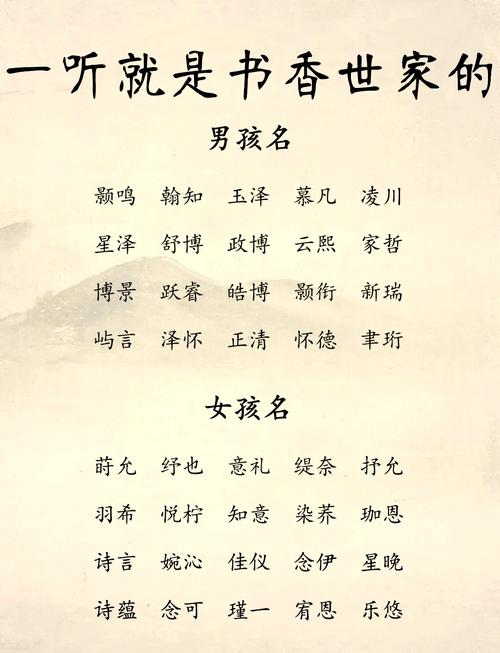 一听就是书香世家的
男孩名
颢鸣 翰知 玉泽 慕凡 凌川
星泽 舒博 政博 云熙 家哲
博景 跃睿 皓博 颢衔 新瑞
屿言 泽怀 正清 怀德 聿珩
女孩名
莳允 纾也 意礼 缇奈 抒允
羽希 悦柠 知意 染荞 珈恩
诗言 婉沁 佳仪 念伊 星晚
诗蕴 念可 瑾一 宥恩 乐悠